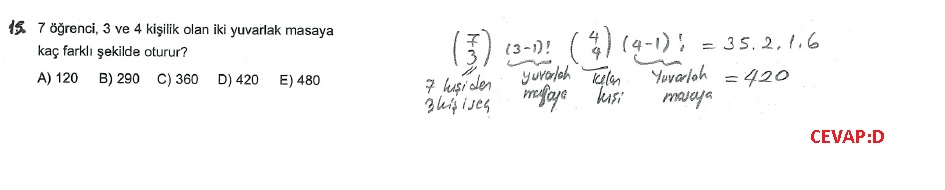 15. 7 öğrenci, 3 ve 4 kişilik olan iki yuvarlak masaya
kaç farklı şekilde oturur?
A) 120 B) 290 C) 360 D) 420 E) 480
(7 3) (3-1)! (4 4) (4-1)! = 35.2.1.6
= 420
7 kişiden
3 kişi seç
yuvarlak
masaya
kalan
kişi
Yuvarlak
masaya
CEVAP:D